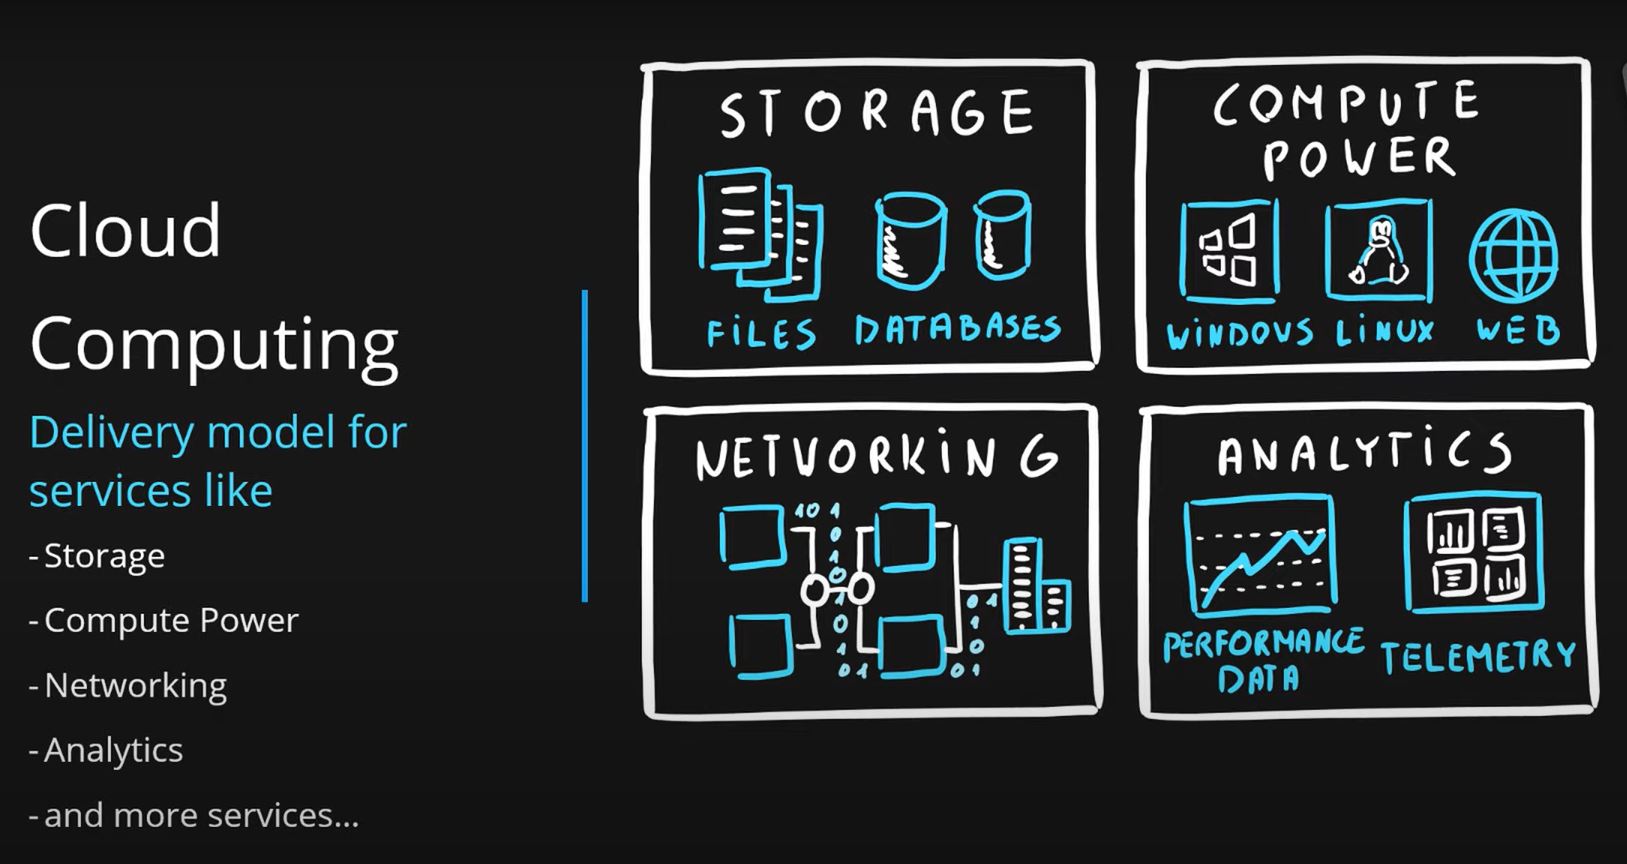 Cloud
Computing
Delivery model for
services like
- Storage
- Compute Power
- Networking
- Analytics
- and more services...
STORAGE
FiLES DATABASES
COMPUTE
POWER
WiNDOVS LiNUX WEB
NETVORKiNG
10 1
0
1
0
1
0
1
01
0 1
1
0
01
ANALYTiCS
PERFORMANCE
DATA
TELEMETRY